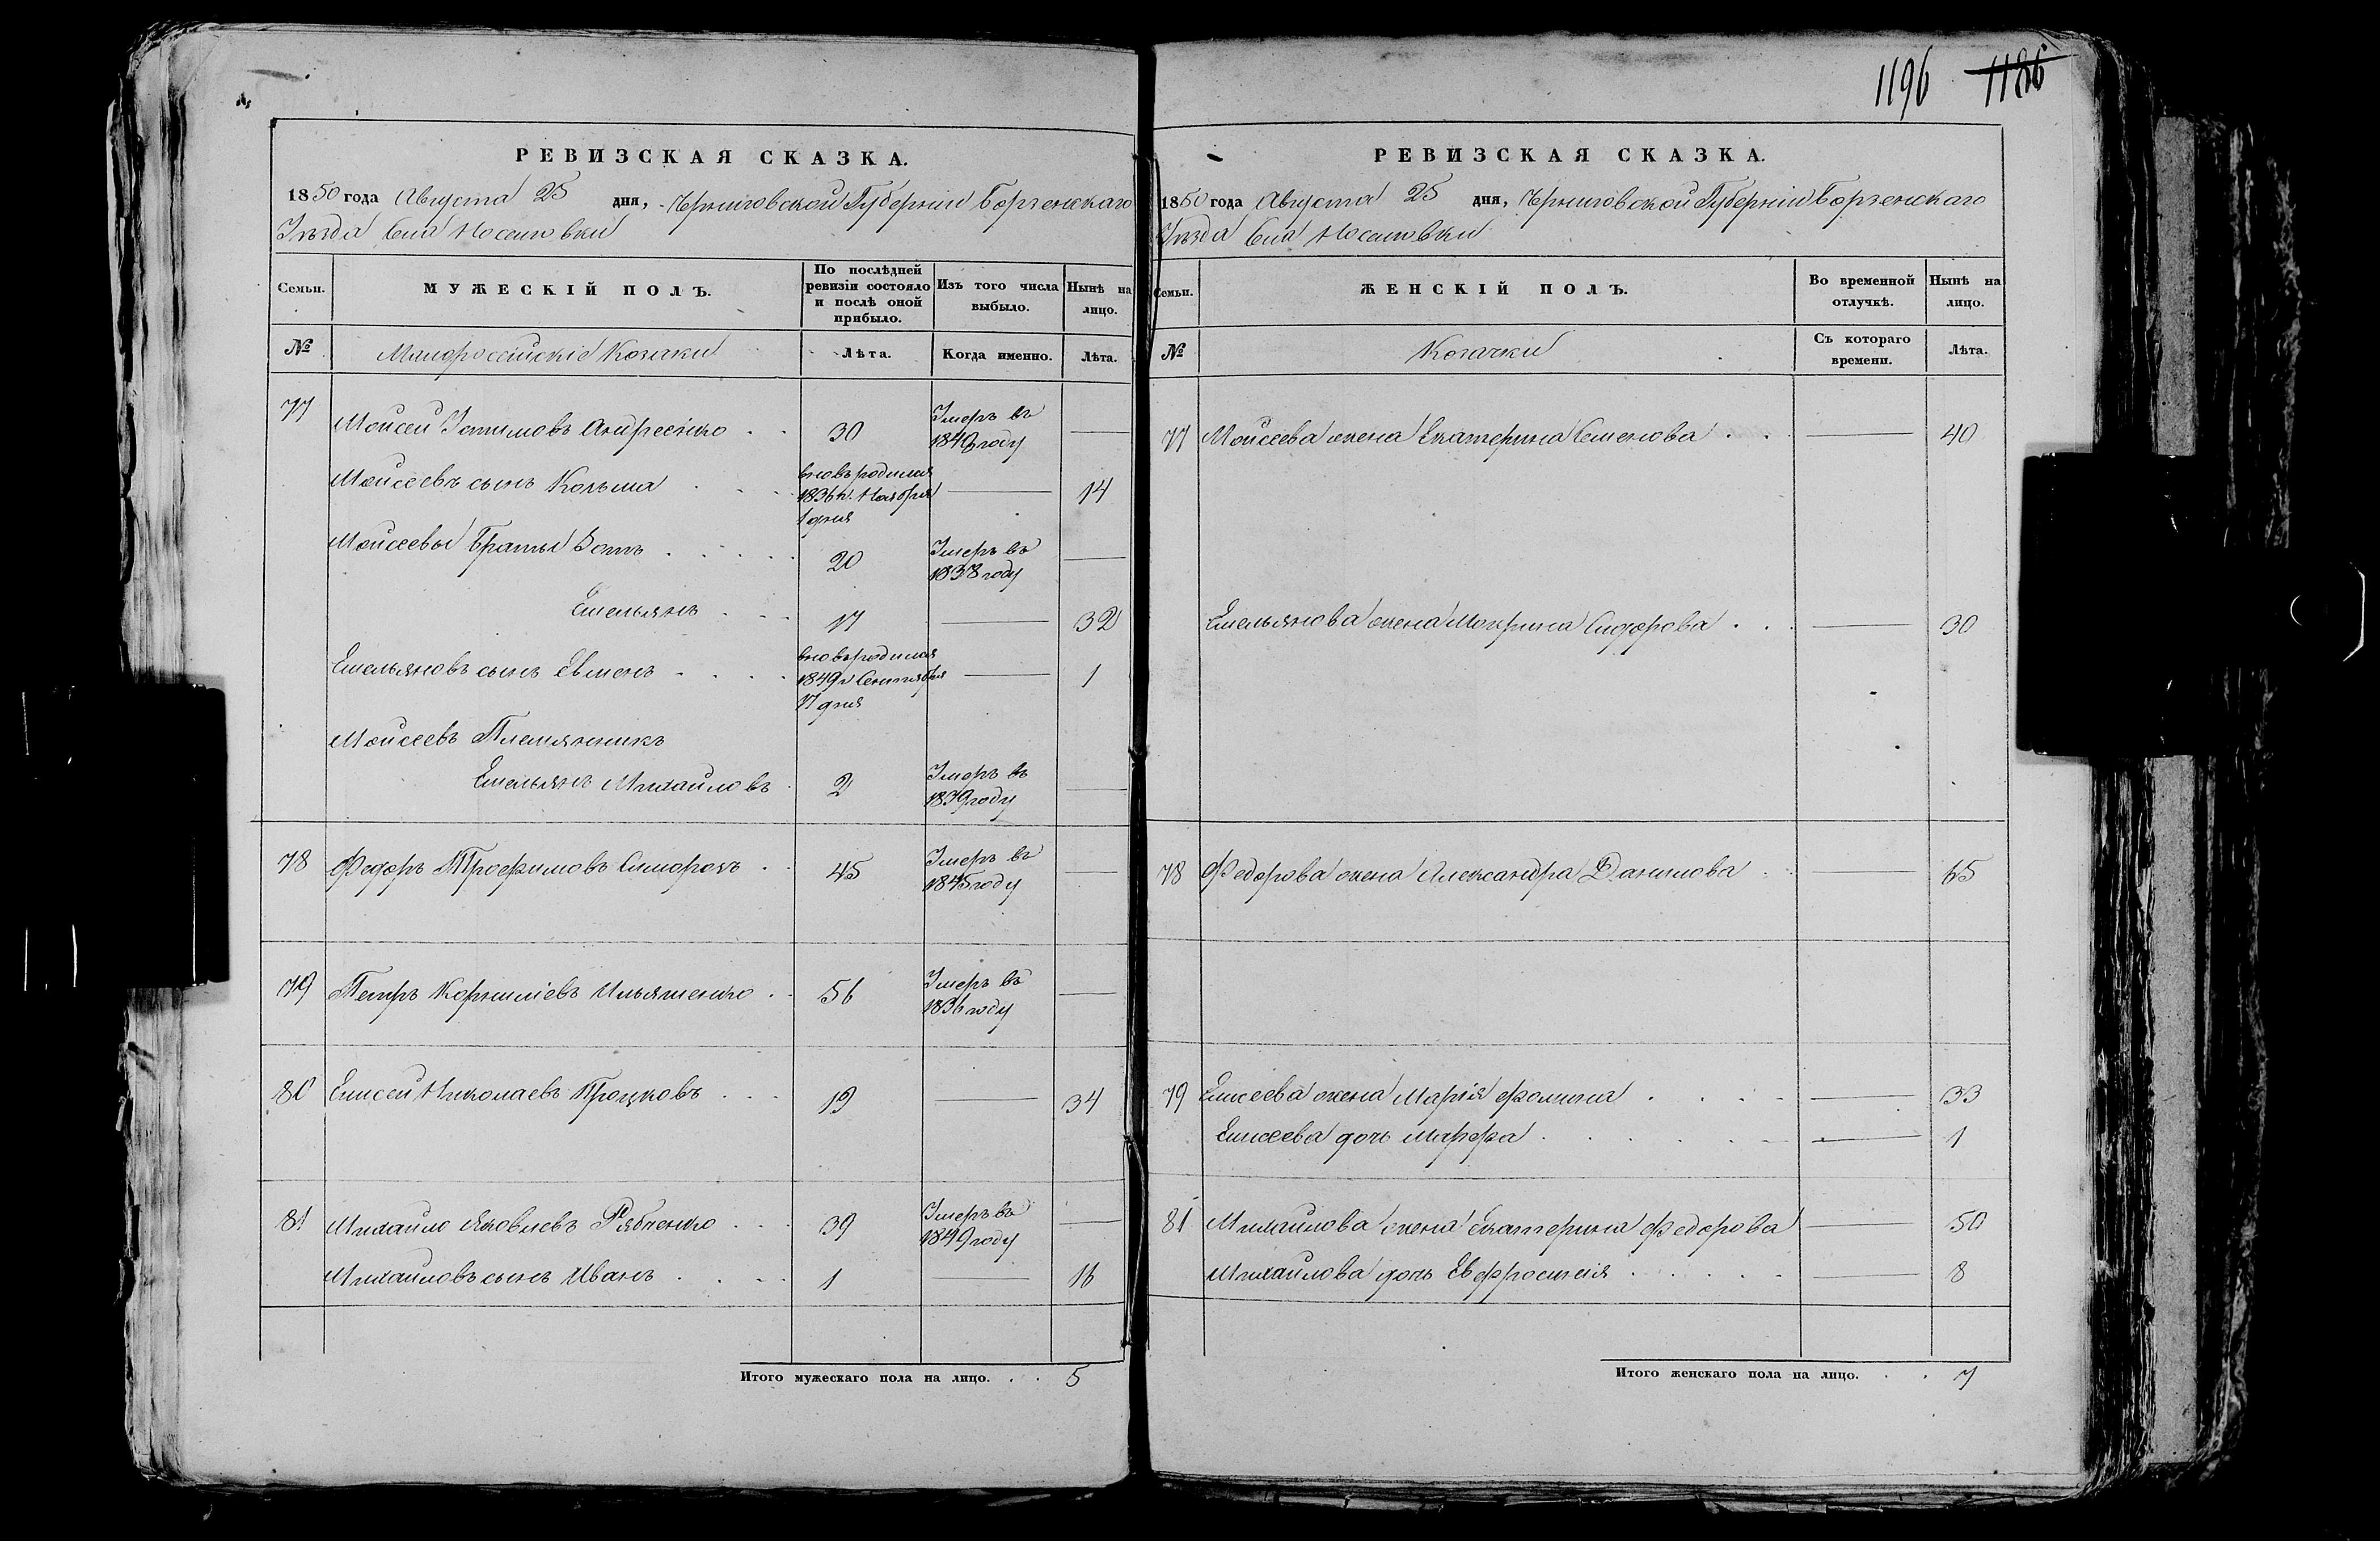 1196 1186
РЕВИЗСКАЯ СКАЗКА.
1850 года Августа 25 дня, Черниговской Губерніи Борзенскаго
Уѣзда Села Носелевки
Семьи.
МУЖЕСКІЙ ПОЛЪ.
По послѣдней ревизіи состояло и послѣ оной прибыло.
Изъ того числа выбыло.
Нынѣ на лицо.
№
Малороссійскіе Козаки
Лѣта.
Когда именно.
Лѣта.
77 Моисей Ѳомъ Андреенко 30 Умеръ въ 1848 году —
Моисеевъ сынъ Козьма вновьродился 1836 г. Ноября 1 дня — 14
Моисеевы Братья 20 Умеръ въ 1838 году —
Емельянъ 17 — 32
Емельяновъ сынъ Евменъ вновьродился 1849 г. Сентября 17 дня — 1
Моисеевъ Племянникъ
Емельянъ Михайловъ 2 Умеръ въ 1839 году —
78 Федоръ Трофимовъ 45 Умеръ въ 1845 году —
79 Петръ Корниліевъ Ильяшенко 56 Умеръ въ 1836 году —
80 Елисей Николаевъ Процковъ 19 — 34
81 Михайло Яковлевъ Рябченко 39 Умеръ въ 1849 году —
Михайловъ сынъ Иванъ 1 — 16
Итого мужескаго пола на лицо. 5
РЕВИЗСКАЯ СКАЗКА.
1850 года Августа 25 дня, Черниговской Губерніи Борзенскаго
Уѣзда Села Носелевки
Семьи.
ЖЕНСКІЙ ПОЛЪ.
Во временной отлучкѣ.
Нынѣ на лицо.
№
Козачки
Съ котораго времени.
Лѣта.
77 Моисеева жена Екатерина Семенова — 40
Емельянова жена Мокрина Сидорова — 30
78 Федорова жена Александра Данилова — 65
79 Елисеева жена Марія Фомина — 33
Елисеева дочь Марфа — 1
81 Михайлова жена Екатерина Федорова — 50
Михайлова дочь Евфросинія — 8
Итого женскаго пола на лицо. 7